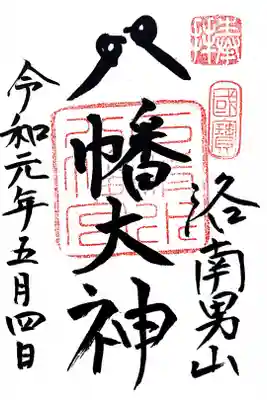 奉拝
国寶
洛南男山
八幡大神
令和元年五月四日